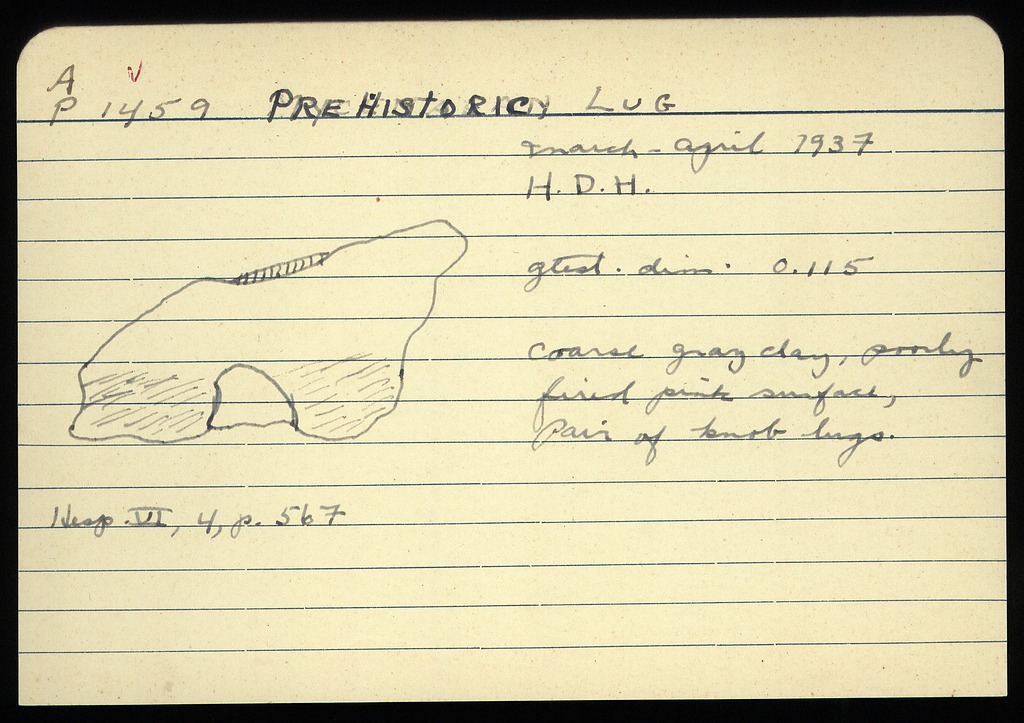 A
P 1459 PREHISTORIC LUG
march - april 1937
H. D. H.
gtest. dim. 0.115
coarse gray clay, poorly
fired pink surface,
Pair of knob lugs.
Hesp. VI, 4, p. 567